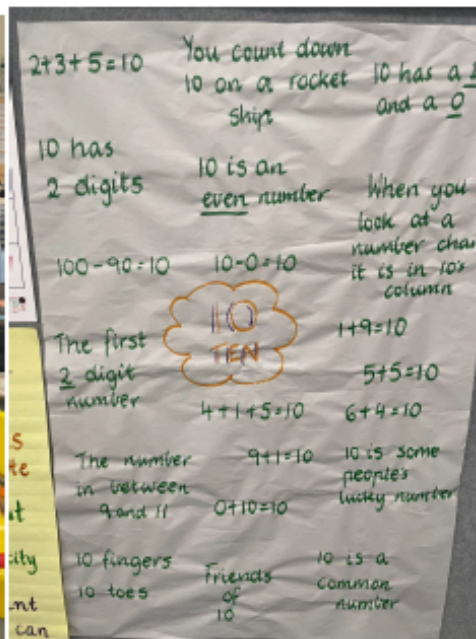 2+3+5=10
You count down
10 on a rocket
ship
10 has a
and a 0
10 has
2 digits
10 is an
even number
When you
look at a
number
it is in 10's
column
100-90=10
10-0=10
10
TEN
1+9=10
The first
2 digit
number
5+5=10
4+1+5=10
6+4=10
The number
in between
9 and 11
9+1=10
0+10=10
10 is some
people's
lucky number
10 fingers
10 toes
Friends
of
10
10 is a
common
number
can